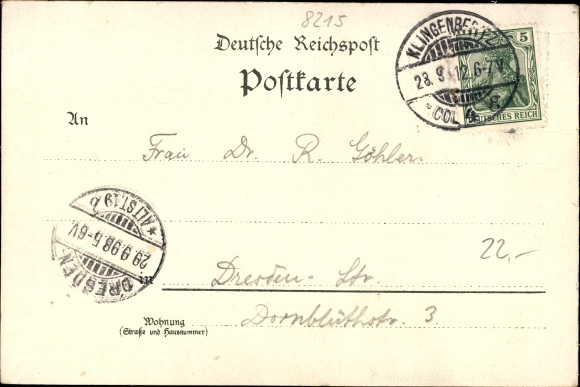 8215
Deutsche Reichspost
Postkarte
KLINGENBERG
28.9.12.6-7V.
COL
5
DEUTSCHES REICH
An
Frau Dr. R. Göhler
ALTST.19.b
29.9.98.5-6V
DRESDEN
22,-
in Dresden- Str.
Dornblüthstr. 3
Wohnung
(Straße und Hausnummer)